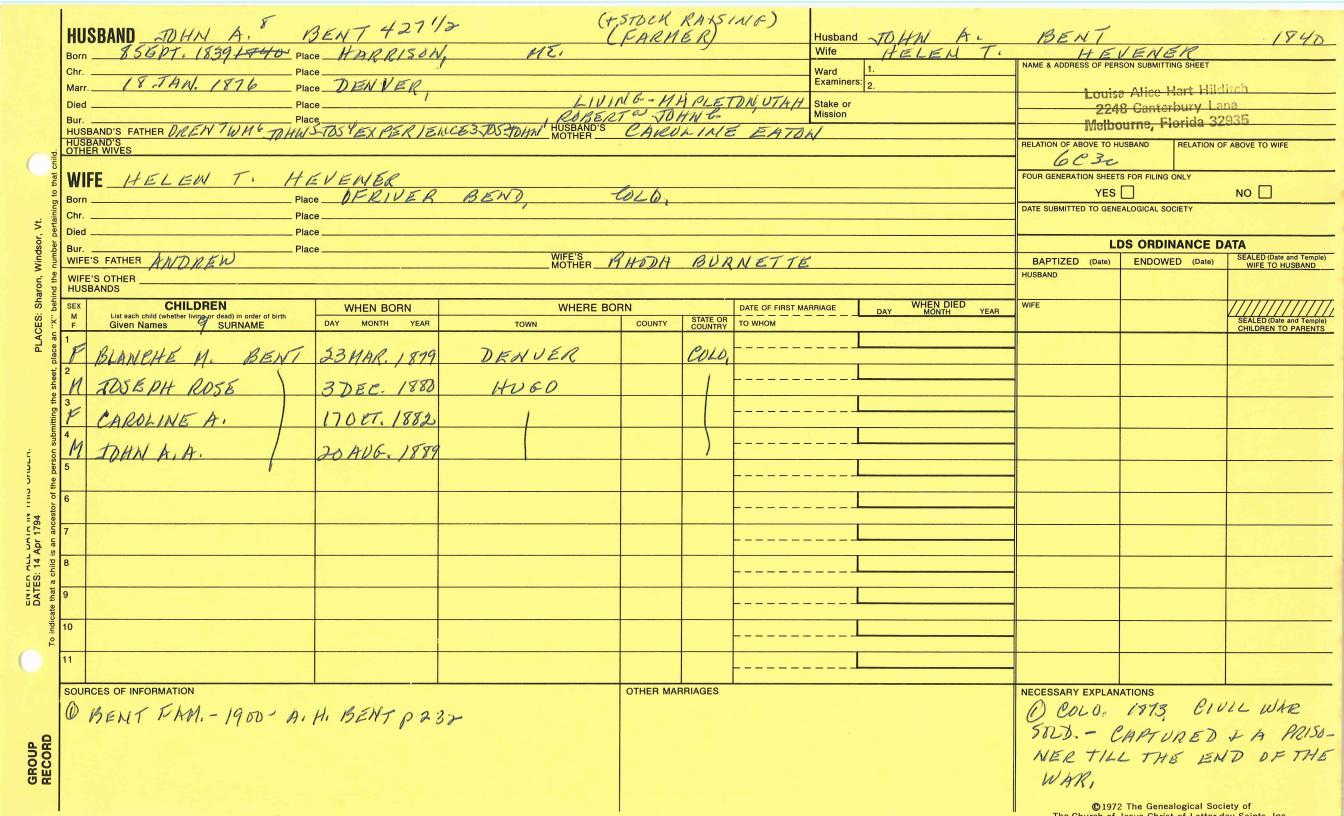 HUSBAND JOHN A.⁸ BENT 427 1/2 (+STOCK RAISING)
(FARMER)
Born 8 SEPT. 1839 1840 Place HARRISON, ME.
Chr. Place
Marr. 18 JAN. 1876 Place DENVER,
Died Place LIVING - MAPLETON, UTAH
Bur. Place
HUSBAND'S FATHER HUSBAND'S MOTHER CAROLINE EATON
HUSBAND'S OTHER WIVES
WIFE HELEN T. HEVENER
Born Place OF RIVER BEND, COLO.
Chr. Place
Died Place
Bur. Place
WIFE'S FATHER ANDREW WIFE'S MOTHER RHODA BURNETTE
WIFE'S OTHER HUSBANDS
Husband JOHN A. BENT 1840
Wife HELEN T. HEVENER
Ward Examiners: 1.
2.
Stake or Mission
NAME & ADDRESS OF PERSON SUBMITTING SHEET
Louise Alice Hart Hilditch
2248 Canterbury Lane
Melbourne, Florida 32935
RELATION OF ABOVE TO HUSBAND RELATION OF ABOVE TO WIFE
6C3R
FOUR GENERATION SHEETS FOR FILING ONLY
YES NO
DATE SUBMITTED TO GENEALOGICAL SOCIETY
LDS ORDINANCE DATA
BAPTIZED (Date) ENDOWED (Date) SEALED (Date and Temple) WIFE TO HUSBAND
HUSBAND
WIFE
SEALED (Date and Temple) CHILDREN TO PARENTS
SEX M F
CHILDREN
List each child (whether living or dead) in order of birth
Given Names 9 SURNAME
WHEN BORN
DAY MONTH YEAR
WHERE BORN
TOWN COUNTY STATE OR COUNTRY
DATE OF FIRST MARRIAGE
TO WHOM
WHEN DIED
DAY MONTH YEAR
1 F BLANCHE M. BENT 23 MAR. 1879 DENVER COLO.
2 M JOSEPH ROSE 3 DEC. 1880 HUGO
3 F CAROLINE A. 17 OCT. 1882
4 M JOHN A.A. 20 AUG. 1889
5
6
7
8
9
10
11
SOURCES OF INFORMATION
① BENT FAM. - 1900 - A.H. BENT p 232
OTHER MARRIAGES
NECESSARY EXPLANATIONS
① COLO. 1873, CIVIL WAR
SOLD. - CAPTURED & A PRISO-
NER TILL THE END OF THE
WAR.
©1972 The Genealogical Society of
The Church of Jesus Christ of Latter-day Saints, Inc.
PLACES: Sharon, Windsor, Vt.
ENTER ALL DATA IN THIS ORDER:
DATES: 14 Apr 1794
To indicate that a child is an ancestor of the person submitting the sheet, place an "X" behind the number pertaining to that child.
GROUP
RECORD